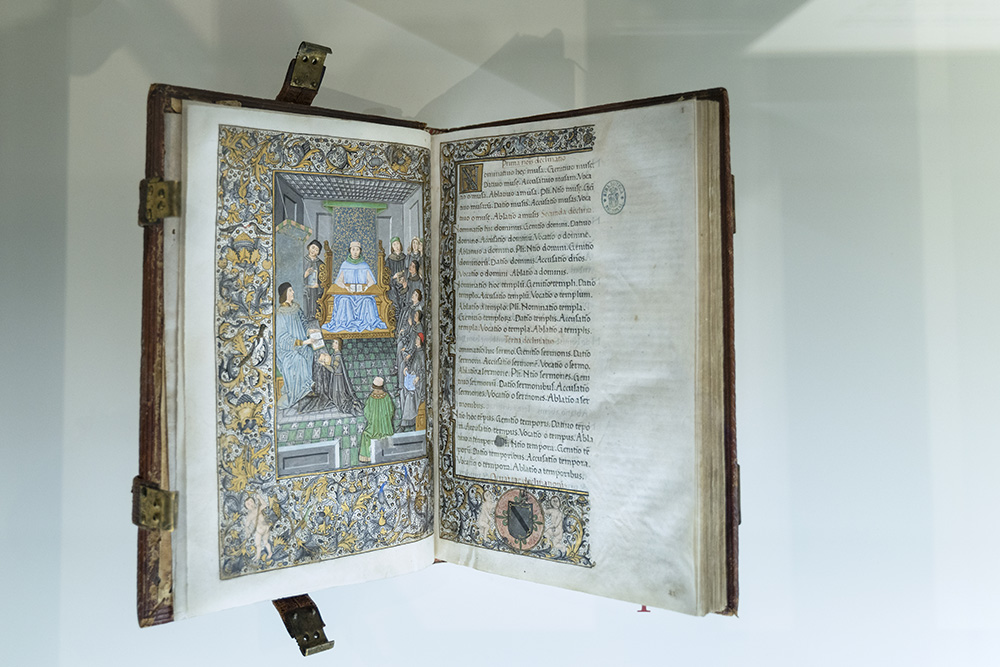 Prima nois declinatio
Nominatiuo hec musa. Genitiuo muse.
Datiuo muse. Accusatiuo musam. Voca
tio o musa. Ablatiuo a musa. Pli. Ntio muse. Gei
tiuo musarũ. Datio musis. Accusatio musas. Voca
tio o muse. Ablatio a musis Secunda declina
ominatiuo hic dominus. Genitio domini. Datiuo
domino. Accusatio dominũ. Vocatio o domine.
Ablatiuo a domino. Pli. Ntio domini. Genitio
dominorũ. Datio dominis. Accusatio dños.
Vocatio o domini. Ablatio a dominis.
ominatio hoc templũ. Genitio templi. Datio
templo. Accusatio templũ. Vocatio o templum.
Ablatio a templo. Pli. Nominatio templa.
Genitio templorũ. Datio templis. Accusatio
templa. Vocatio o templa. Ablatio a templis.
Tertia declinatio
ominatio hic sermo. Genitio sermonis. Datio
sermoni. Accusatio sermonẽ. Vocatio o sermo.
Ablatio a sermone. Pli. Ntio sermones. Geni
tiuo sermonũ. Datio sermonibus. Accusatio
sermones. Vocatio o sermones. Ablatio a ser
monibus.
tio hoc tẽpus. Genitio temporis. Datiuo tẽpo
ri. Accusatio tempus. Vocatio o tempus. Abla
tio a tempore. Pli. Ntio tempora. Genitio tẽ
porũ. Datio temporibus. Accusatio tempora.
Vocatio o tempora. Ablatio a temporibus.